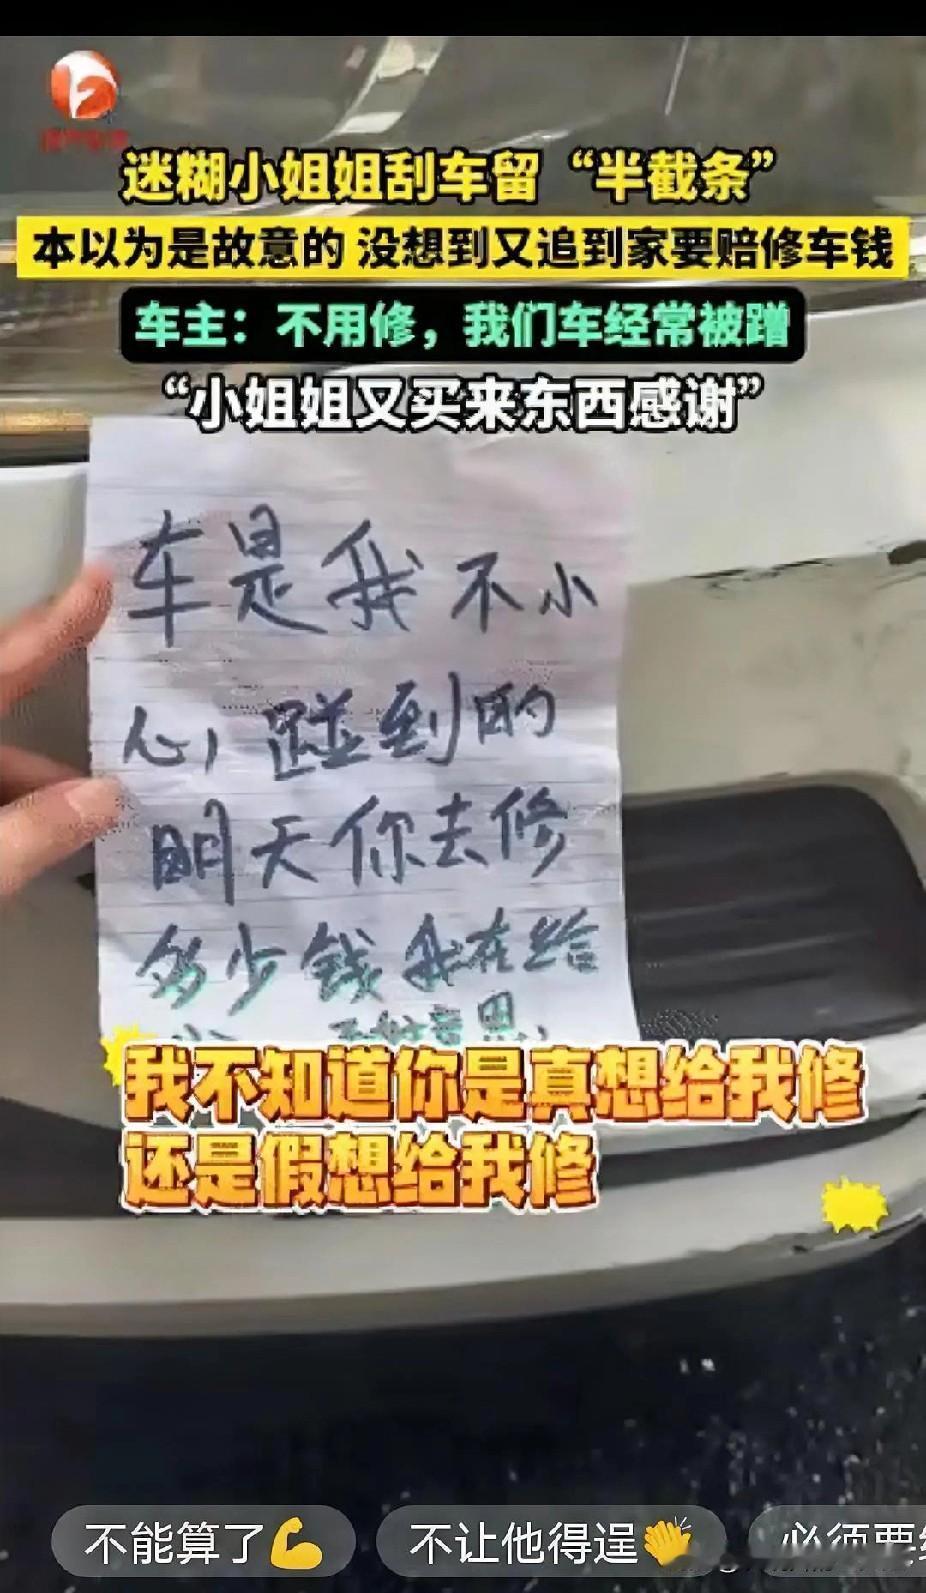 迷糊小姐姐刮车留“半截条”
本以为是故意的 没想到又追到家要赔修车钱
车主：不用修，我们车经常被蹭
“小姐姐又买来东西感谢”
车是我不小
心，碰到的
明天你去修
多少钱我在给
不好意思，
我不知道你是真想给我修
还是假想给我修
不能算了💪
不让他得逞👏
必须要